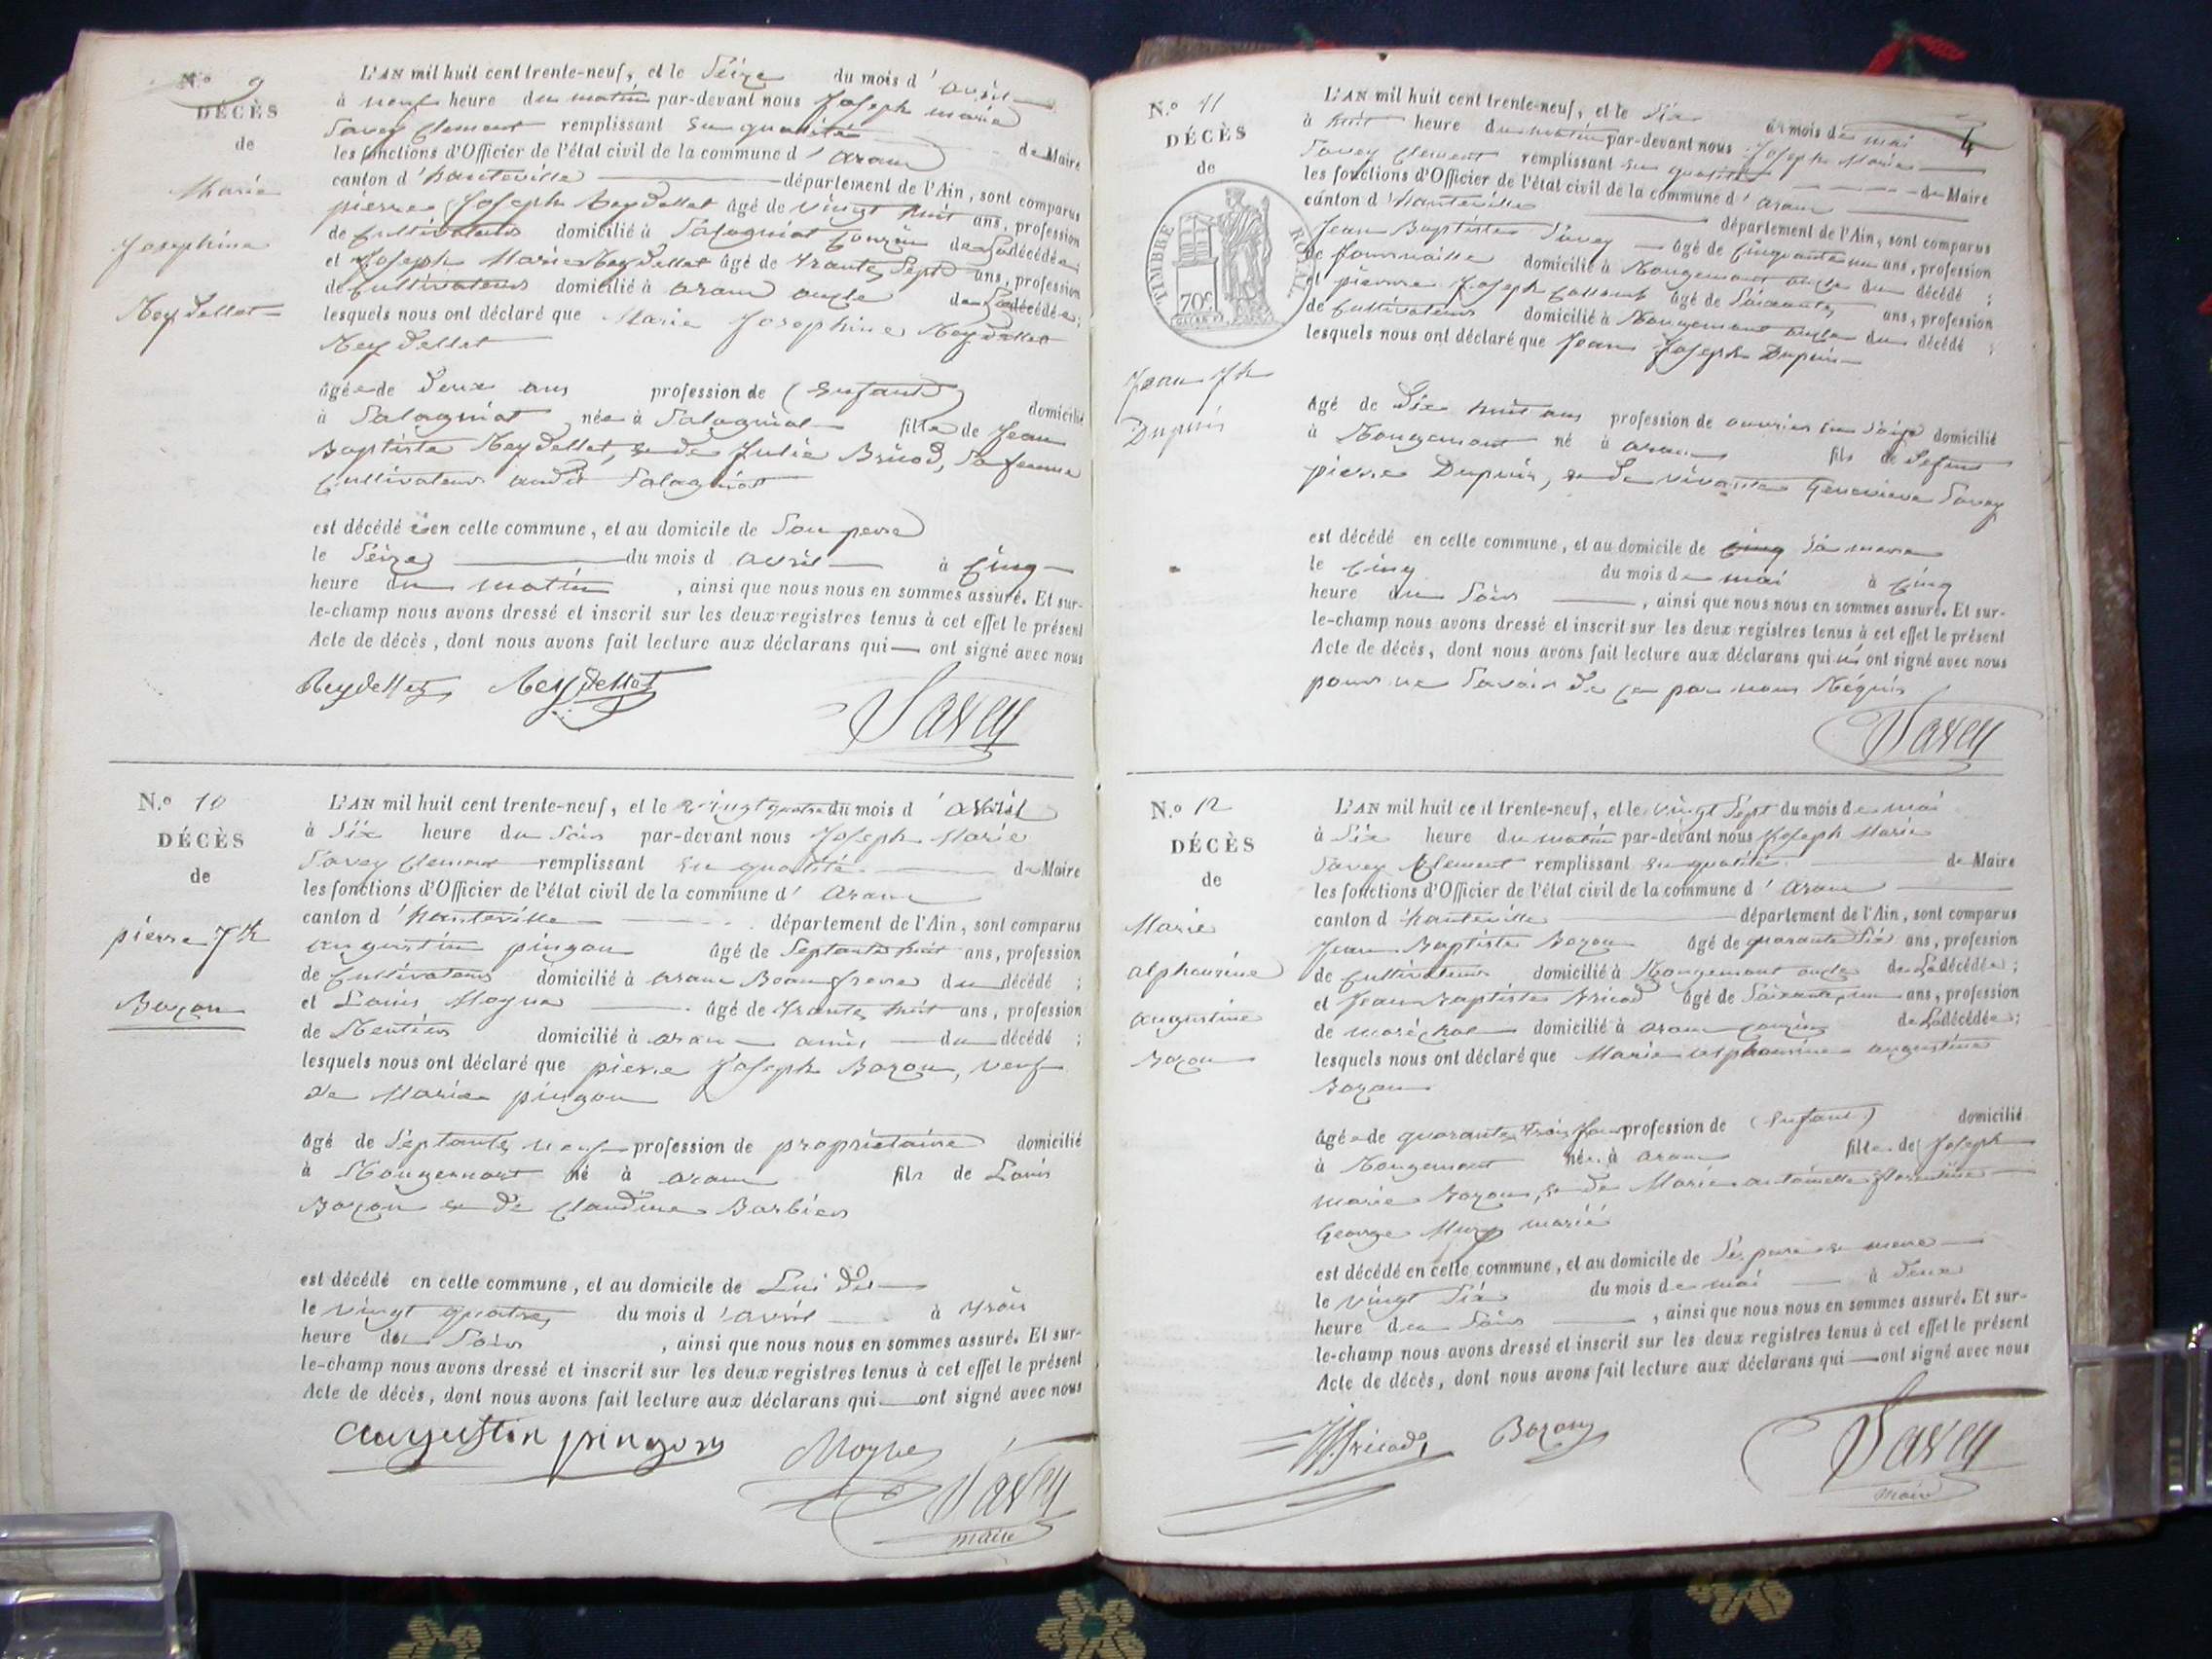 N.o 9
DÉCÈS
de
Marie
Josephine
Reydellet
L'AN mil huit cent trente-neuf, et le Seize du mois d'avril
à neuf heure du matin par-devant nous Joseph marie
Savey Clement remplissant en qualité de Maire
les fonctions d'Officier de l'état civil de la commune d'aran
canton d'hauteville département de l'Ain, sont comparus
pierre Joseph Reydellet âgé de vingt huit ans, profession
de Cultivateur domicilié à Salagniat Couzin de La décédée
et Joseph Marie Reydellet âgé de trante Sept ans, profession
de Cultivateur domicilié à aran oncle de La décédée;
lesquels nous ont déclaré que Marie Josephine Reydellet
Reydellet
âgée de Deux ans profession de (enfant) domicilié
à Salagniat née à Salagniat fille de Jean
Baptiste Reydellet, et de Julie Bricod, Sa femme
Cultivateurs audit Salagniat
est décédée en celle commune, et au domicile de Son pere
le Seize du mois d avril à Cinq
heure du matin, ainsi que nous nous en sommes assuré. Et sur-
le-champ nous avons dressé et inscrit sur les deux registres tenus à cet effet le présent
Acte de décès, dont nous avons fait lecture aux déclarans qui ont signé avec nous
Reydellet Reydellet
Savey
N.o 10
DÉCÈS
de
pierre Jh
Bozon
L'AN mil huit cent trente-neuf, et le vingt quatre du mois d'avril
à Six heure du Soir par-devant nous Joseph Marie
Savey Clement remplissant en qualité de Maire
les fonctions d'Officier de l'état civil de la commune d'aran
canton d'hauteville département de l'Ain, sont comparus
augustin pingon âgé de Septante huit ans, profession
de Cultivateur domicilié à aran Beaufrere du décédé;
et Louis Moyne âgé de trante huit ans, profession
de Rentier domicilié à aran amis du décédé;
lesquels nous ont déclaré que pierre Joseph Bozon, veuf
de Marie pingon
âgé de Septante neuf profession de proprietaire domicilié
à Rougemont né à aran fils de Louis
Bozon et de Claudine Barbier
est décédé en celle commune, et au domicile de Lui dit
le vingt quatre du mois d'avril à trois
heure du Soir, ainsi que nous nous en sommes assuré. Et sur-
le-champ nous avons dressé et inscrit sur les deux registres tenus à cet effet le présent
Acte de décès, dont nous avons fait lecture aux déclarans qui ont signé avec nous
augustin pingon Moyne
Savey
maire
N.o 11
DÉCÈS
de
TIMBRE ROYAL
70c
Jean Jh
Dupuis
L'AN mil huit cent trente-neuf, et le Six du mois de mai
à huit heure du matin par-devant nous Joseph Marie
Savey Clement remplissant en qualité de Maire
les fonctions d'Officier de l'état civil de la commune d'aran
canton d'hauteville département de l'Ain, sont comparus
Jean Baptiste Savey âgé de Cinquante un ans, profession
de domicilié à Rougemont oncle du décédé;
et pierre Joseph âgé de Soixante ans, profession
de Cultivateur domicilié à Rougemont oncle du décédé;
lesquels nous ont déclaré que Jean Joseph Dupuis
âgé de Dix huit ans profession de ouvrier en Soie domicilié
à Rougemont né à aran fils de defunt
pierre Dupuis, et de vivante Genevieve Savey
est décédé en celle commune, et au domicile de Sa mere
le Cinq du mois de mai à Cinq
heure du Soir, ainsi que nous nous en sommes assuré. Et sur-
le-champ nous avons dressé et inscrit sur les deux registres tenus à cet effet le présent
Acte de décès, dont nous avons fait lecture aux déclarans qui n' ont signé avec nous
pour ne Savoir de ce par nous Réquis
Savey
N.o 12
DÉCÈS
de
Marie
alphonsine
augustine
Bozon
L'AN mil huit cent trente-neuf, et le vingt Sept du mois de mai
à Six heure du matin par-devant nous Joseph Marie
Savey Clement remplissant en qualité de Maire
les fonctions d'Officier de l'état civil de la commune d'aran
canton d'hauteville département de l'Ain, sont comparus
Jean Baptiste Bozon âgé de quarante Six ans, profession
de Cultivateur domicilié à Rougemont oncle de La décédée;
et Jean Baptiste Bricod âgé de Soixante un ans, profession
de maréchal domicilié à aran Couzin de La décédée;
lesquels nous ont déclaré que Marie alphonsine augustine
Bozon
âgée de quarante trois jours profession de (enfant) domicilié
à Rougemont née à aran fille de Joseph
marie Bozon, et de Marie antoinette florentine
George Muzy marié
est décédé en celle commune, et au domicile de Ses pere et mere
le vingt Six du mois de mai à Deux
heure du Soir, ainsi que nous nous en sommes assuré. Et sur-
le-champ nous avons dressé et inscrit sur les deux registres tenus à cet effet le présent
Acte de décès, dont nous avons fait lecture aux déclarans qui ont signé avec nous
JB Bricod Bozon
Savey
maire